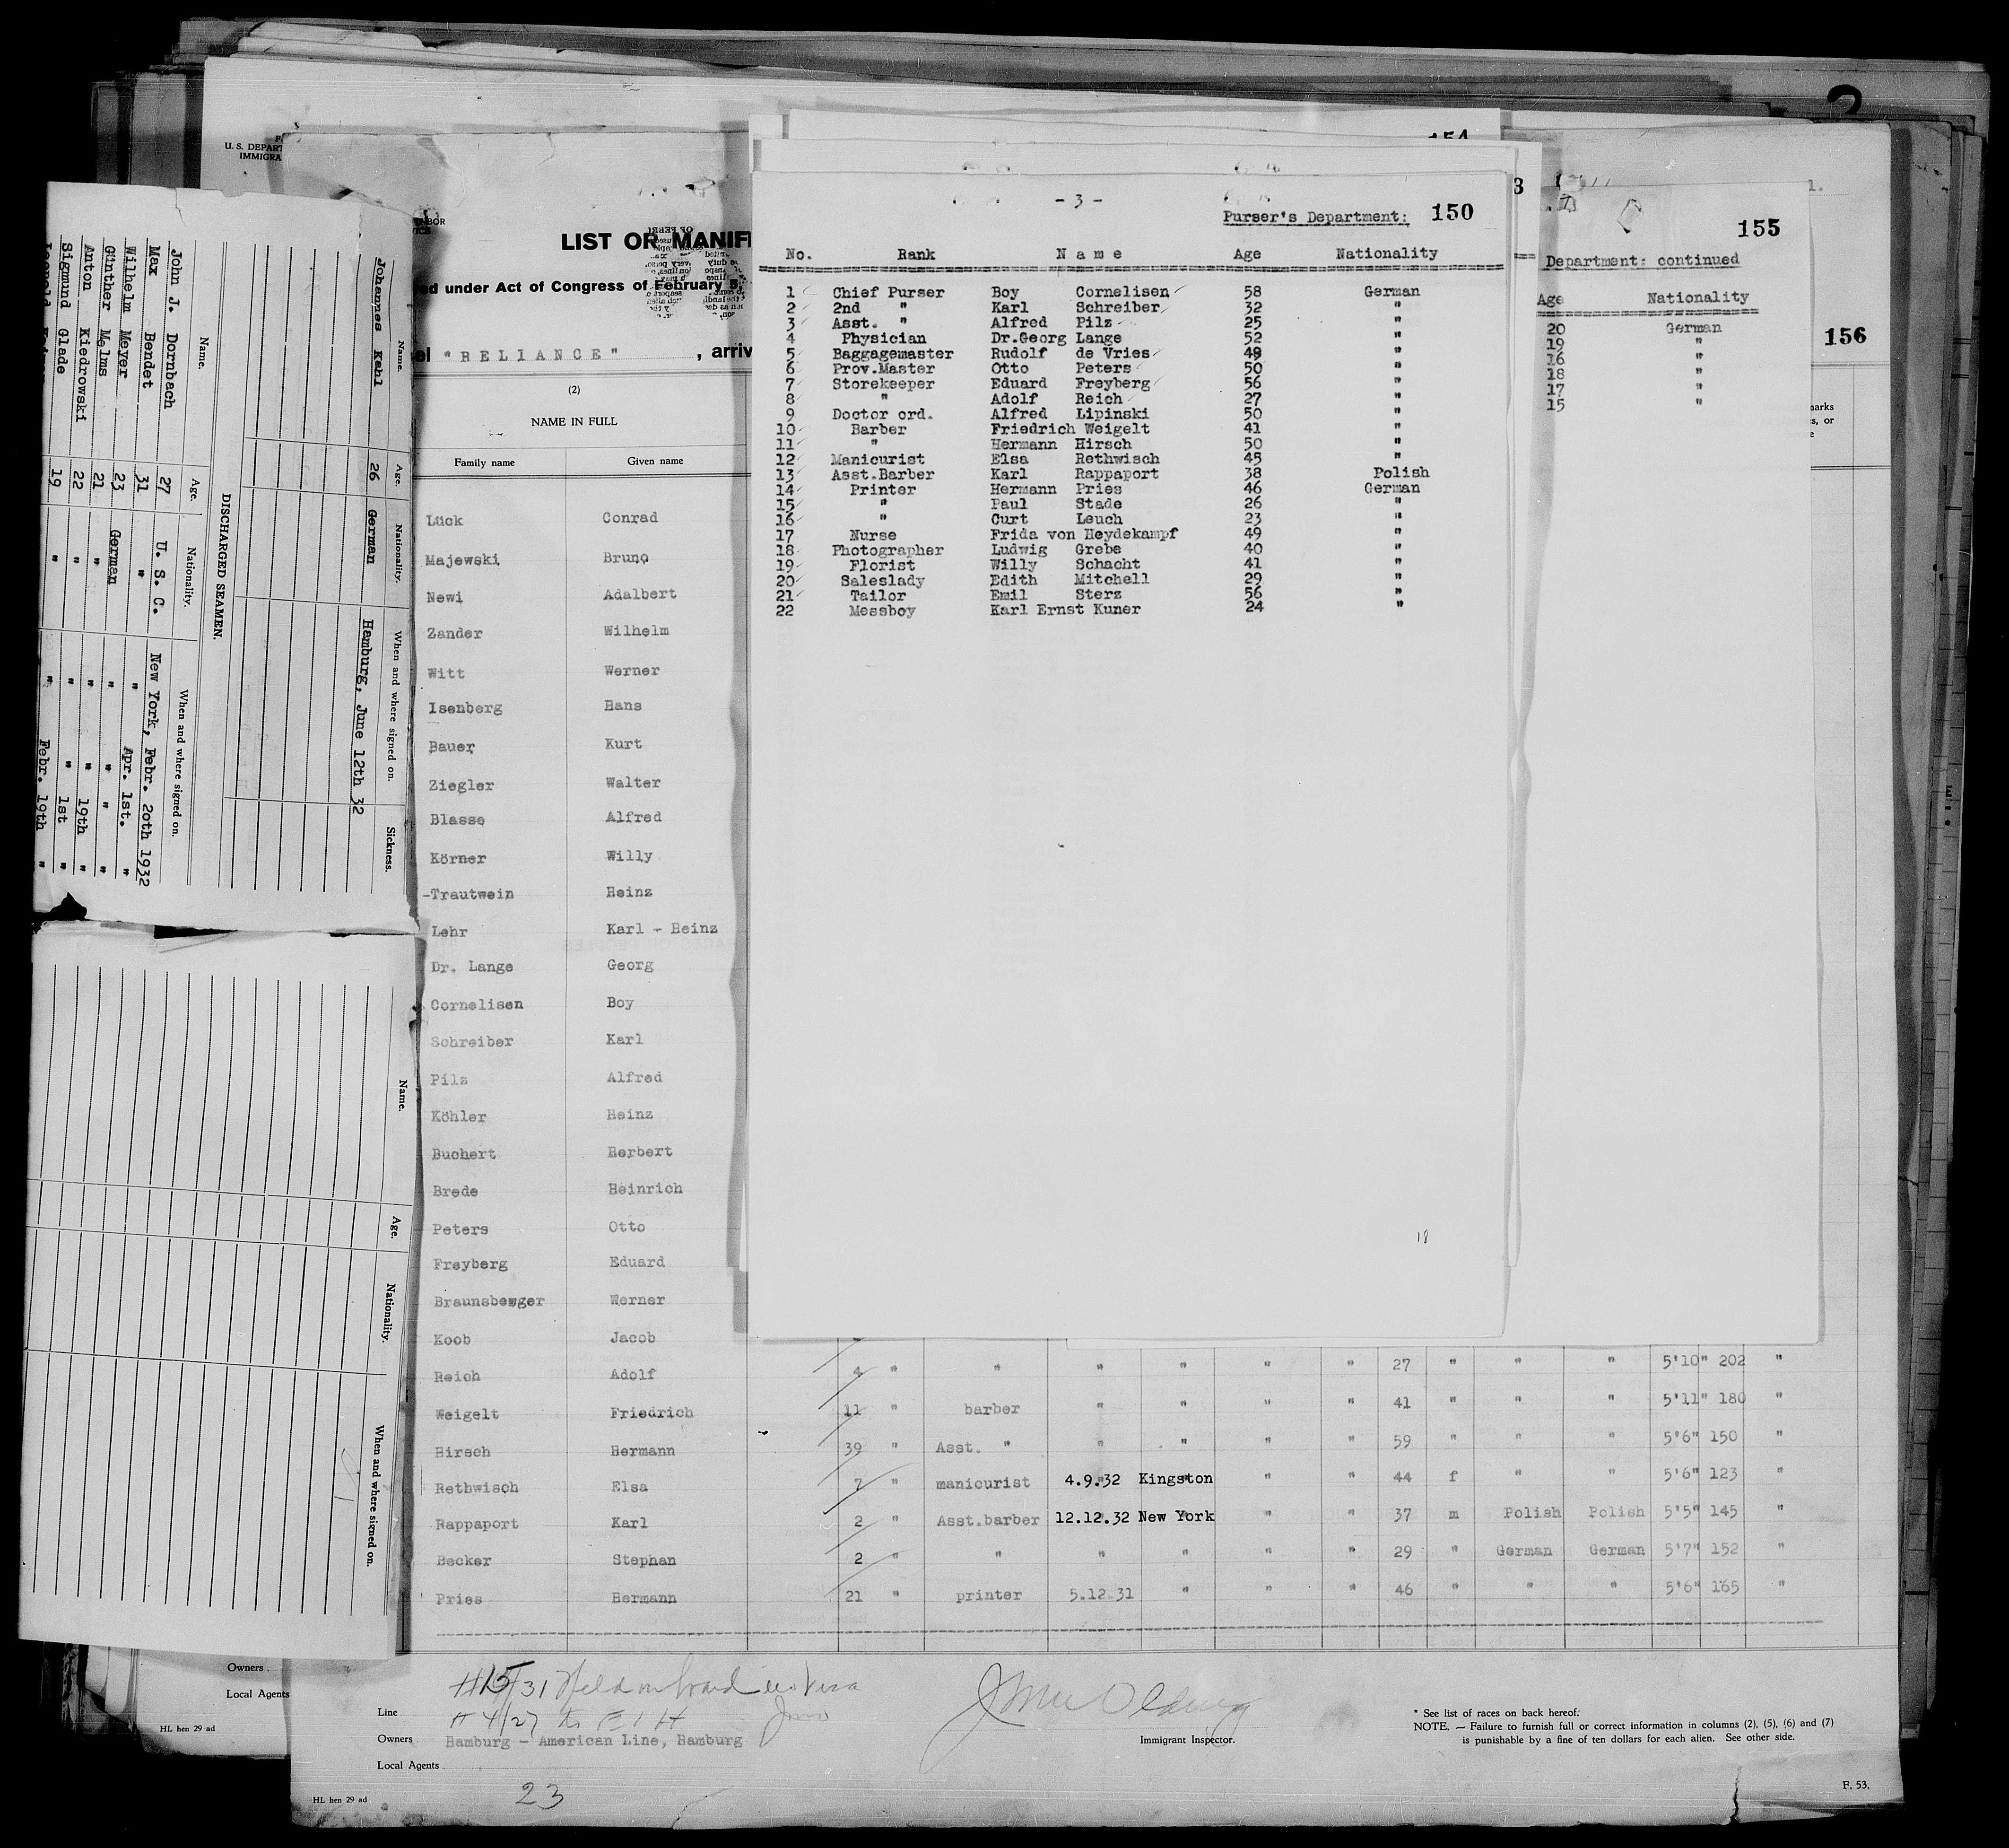 2
154
3
1.
U. S. DEPAR
IMMIGRA
- 3 -
Purser's Department: 150
No. Rank Name Age Nationality
1 Chief Purser Boy Cornelisen 58 German
2 2nd " Karl Schreiber 32 "
3 Asst. " Alfred Pilz 25 "
4 Physician Dr.Georg Lange 52 "
5 Baggagemaster Rudolf de Vries 49 "
6 Prov.Master Otto Peters 50 "
7 Storekeeper Eduard Freyberg 56 "
8 " Adolf Reich 27 "
9 Doctor ord. Alfred Lipinski 50 "
10 Barber Friedrich Weigelt 41 "
11 " Hermann Hirsch 50 "
12 Manicurist Elsa Rethwisch 45 "
13 Asst.Barber Karl Rappaport 38 Polish
14 Printer Hermann Pries 46 German
15 " Paul Stade 26 "
16 " Curt Leuch 23 "
17 Nurse Frida von Heydekampf 49 "
18 Photographer Ludwig Grebe 40 "
19 Florist Willy Schacht 41 "
20 Saleslady Edith Mitchell 29 "
21 Tailor Emil Sterz 56 "
22 Messboy Karl Ernst Kuner 24 "
18
155
Department: continued
Age Nationality
20 German
19 "
16 "
18 "
17 "
15 "
156
arks
s, or
e
LIST OR MANIF
ed under Act of Congress of February 5,
el "RELIANCE" , arriv
(2)
NAME IN FULL
Family name Given name
Lück Conrad
Majewski Bruno
Newi Adalbert
Zander Wilhelm
Witt Werner
Isenberg Hans
Bauer Kurt
Ziegler Walter
Blasse Alfred
Körner Willy
-Trautwein Heinz
Lehr Karl - Heinz
Dr. Lange Georg
Cornelisen Boy
Schreiber Karl
Pilz Alfred
Köhler Heinz
Buchert Herbert
Brede Heinrich
Peters Otto
Freyberg Eduard
Braunsberger Werner
Koob Jacob
Reich Adolf 4 " " " " " " 27 " " " 5'10" 202 "
Weigelt Friedrich 11 " barber " " " " 41 " " " 5'11" 180 "
Hirsch Hermann 39 " Asst. " " " " " 59 " " " 5'6" 150 "
Rethwisch Elsa 7 " manicurist 4.9.32 Kingston " " 44 f " " 5'6" 123 "
Rappaport Karl 2 " Asst.barber 12.12.32 New York " " 37 m Polish Polish 5'5" 145 "
Becker Stephan 2 " " " " " " 29 " German German 5'7" 152 "
Pries Hermann 21 " printer 5.12.31 " " " 46 " " " 5'6" 165 "
Line
Owners Hamburg - American Line, Hamburg
Local Agents
23
HL hen 29 ad
Immigrant Inspector.
* See list of races on back hereof.
NOTE. — Failure to furnish full or correct information in columns (2), (5), (6) and (7)
is punishable by a fine of ten dollars for each alien. See other side.
F. 53.
Owners
Local Agents
HL hen 29 ad
Name. Age. Nationality. When and where signed on. Sickness.
Johannes Kahl 26 German Hamburg, June 12th 32
DISCHARGED SEAMEN.
Name. Age. Nationality. When and where signed on.
John J. Dornbach 27 U. S. C. New York, Febr. 20th 1932
Max Bendet 31 " " Apr. 1st. "
Wilhelm Meyer 23 German " " " "
Günther Melms 21 " " " " "
Anton Kiedrowski 22 " " " 19th "
Sigmund Glade 19 " " " 1st "
" Febr. 19th "
Name. Age. Nationality. When and where signed on.